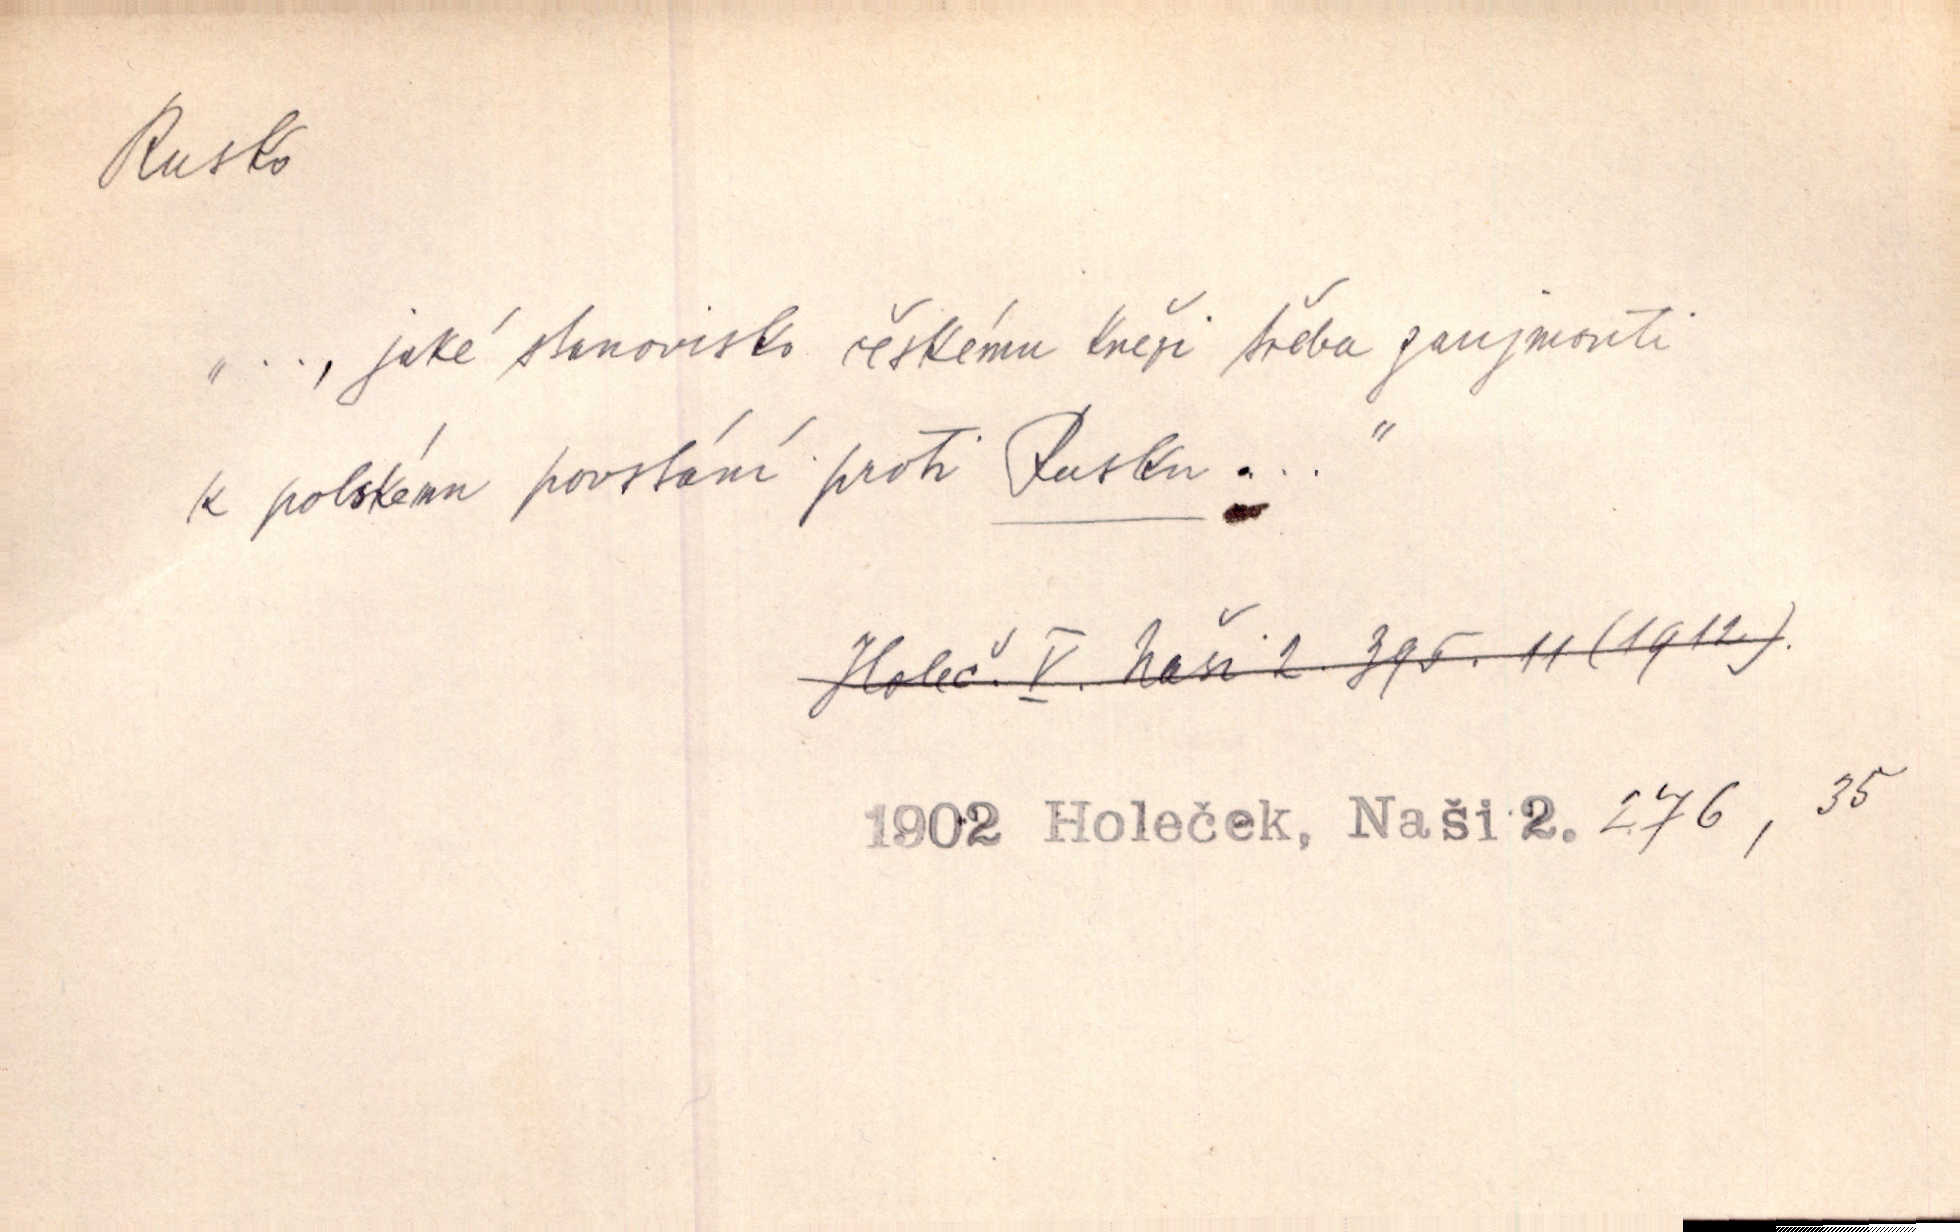 Rusko
„..., jaké stanovisko českému knězi třeba zaujmouti
k polskému povstání proti Rusku ..."
Holeč. V. Naši 2. 395. 11 (1912).
1902 Holeček, Naši 2. 276, 35